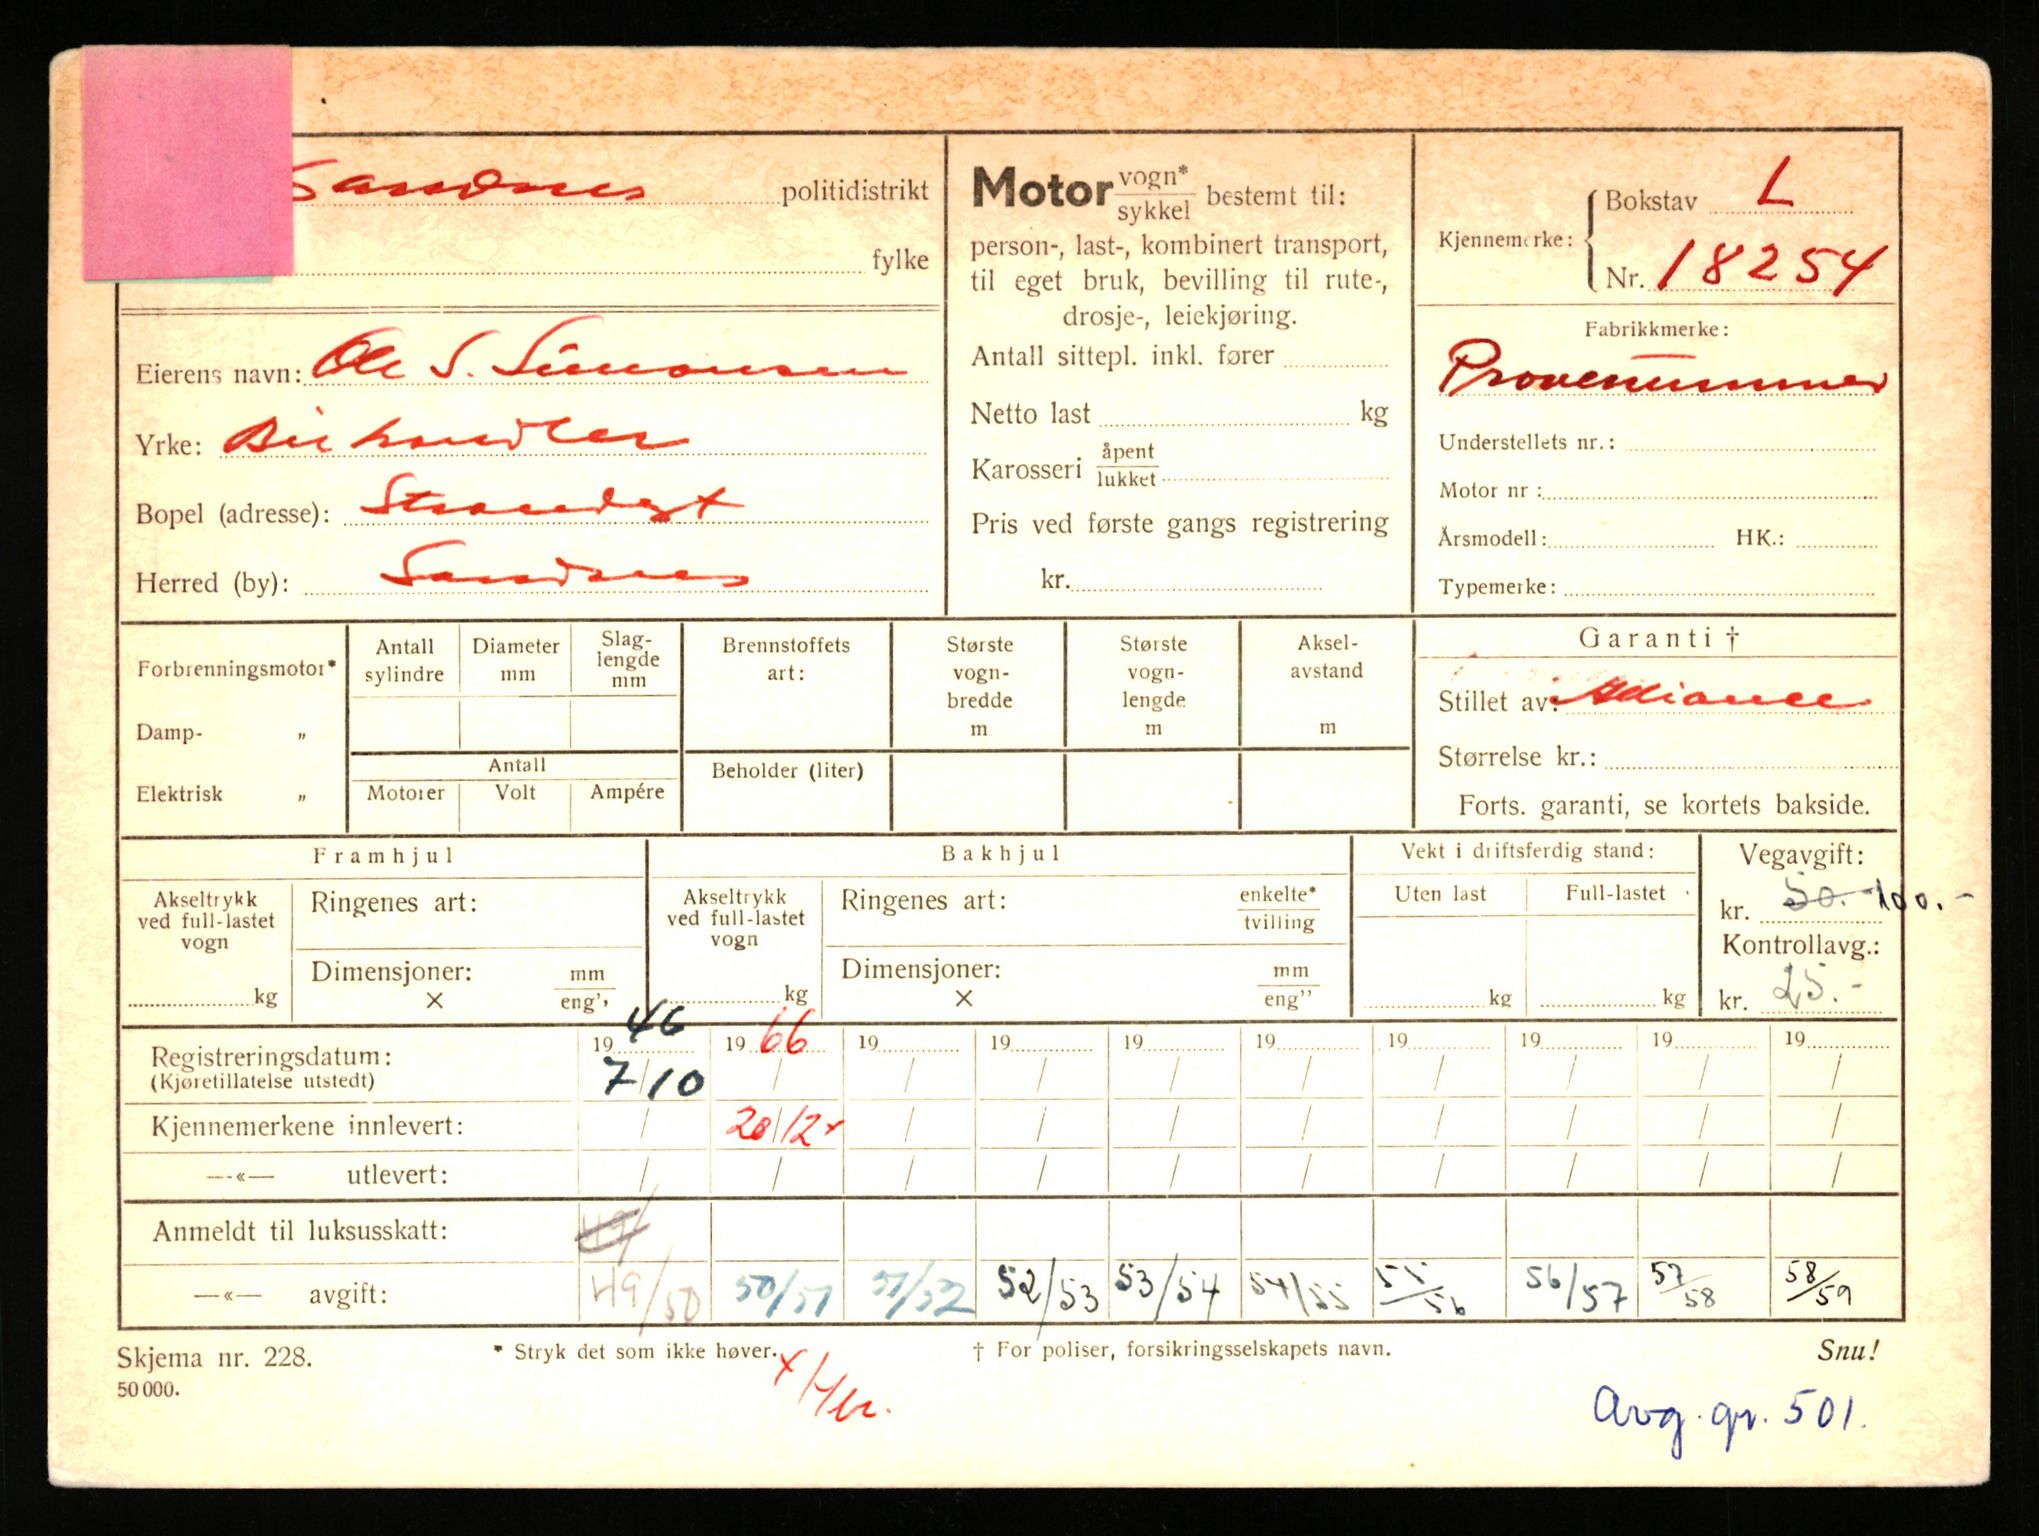 Sandnes politidistrikt
fylke
Eierens navn: Ole S. Simonsen
Yrke: Bilhandler
Bopel (adresse): Strandgt
Herred (by): Sandnes
Motor vogn* / sykkel bestemt til:
person-, last-, kombinert transport,
til eget bruk, bevilling til rute-,
drosje-, leiekjøring.
Antall sittepl. inkl. fører
Netto last kg
Karosseri åpent / lukket
Pris ved første gangs registrering
kr.
Kjennemerke: Bokstav L
Nr. 18254
Fabrikkmerke:
Prøvenummer
Understellets nr.:
Motor nr :
Årsmodell: HK.:
Typemerke:
Forbrenningsmotor*
Damp- „
Elektrisk „
Antall sylindre
Diameter mm
Slag-lengde mm
Antall
Motorer Volt Ampére
Brennstoffets art:
Beholder (liter)
Største vogn-bredde m
Største vogn-lengde m
Aksel-avstand m
Garanti †
Stillet av:
Størrelse kr.:
Forts. garanti, se kortets bakside.
Framhjul
Akseltrykk ved full-lastet vogn
kg
Ringenes art:
Dimensjoner: mm
× eng''
Bakhjul
Akseltrykk ved full-lastet vogn
kg
Ringenes art: enkelte* / tvilling
Dimensjoner: mm
× eng''
Vekt i driftsferdig stand:
Uten last Full-lastet
kg kg
Vegavgift:
kr. 50.- 100.-
Kontrollavg.:
kr. 25.-
Registreringsdatum: 19 46 19 66 19 19 19 19 19 19 19 19
(Kjøretillatelse utstedt) 7/10 / / / / / / / / /
Kjennemerkene innlevert: / 20/12 x / / / / / / / /
—«— utlevert: / / / / / / / / / /
Anmeldt til luksusskatt: 49/
—«— avgift: 49/50 50/51 51/52 52/53 53/54 54/55 55/56 56/57 57/58 58/59
Skjema nr. 228. * Stryk det som ikke høver. † For poliser, forsikringsselskapets navn. Snu!
50 000.
Avg. gr. 501.